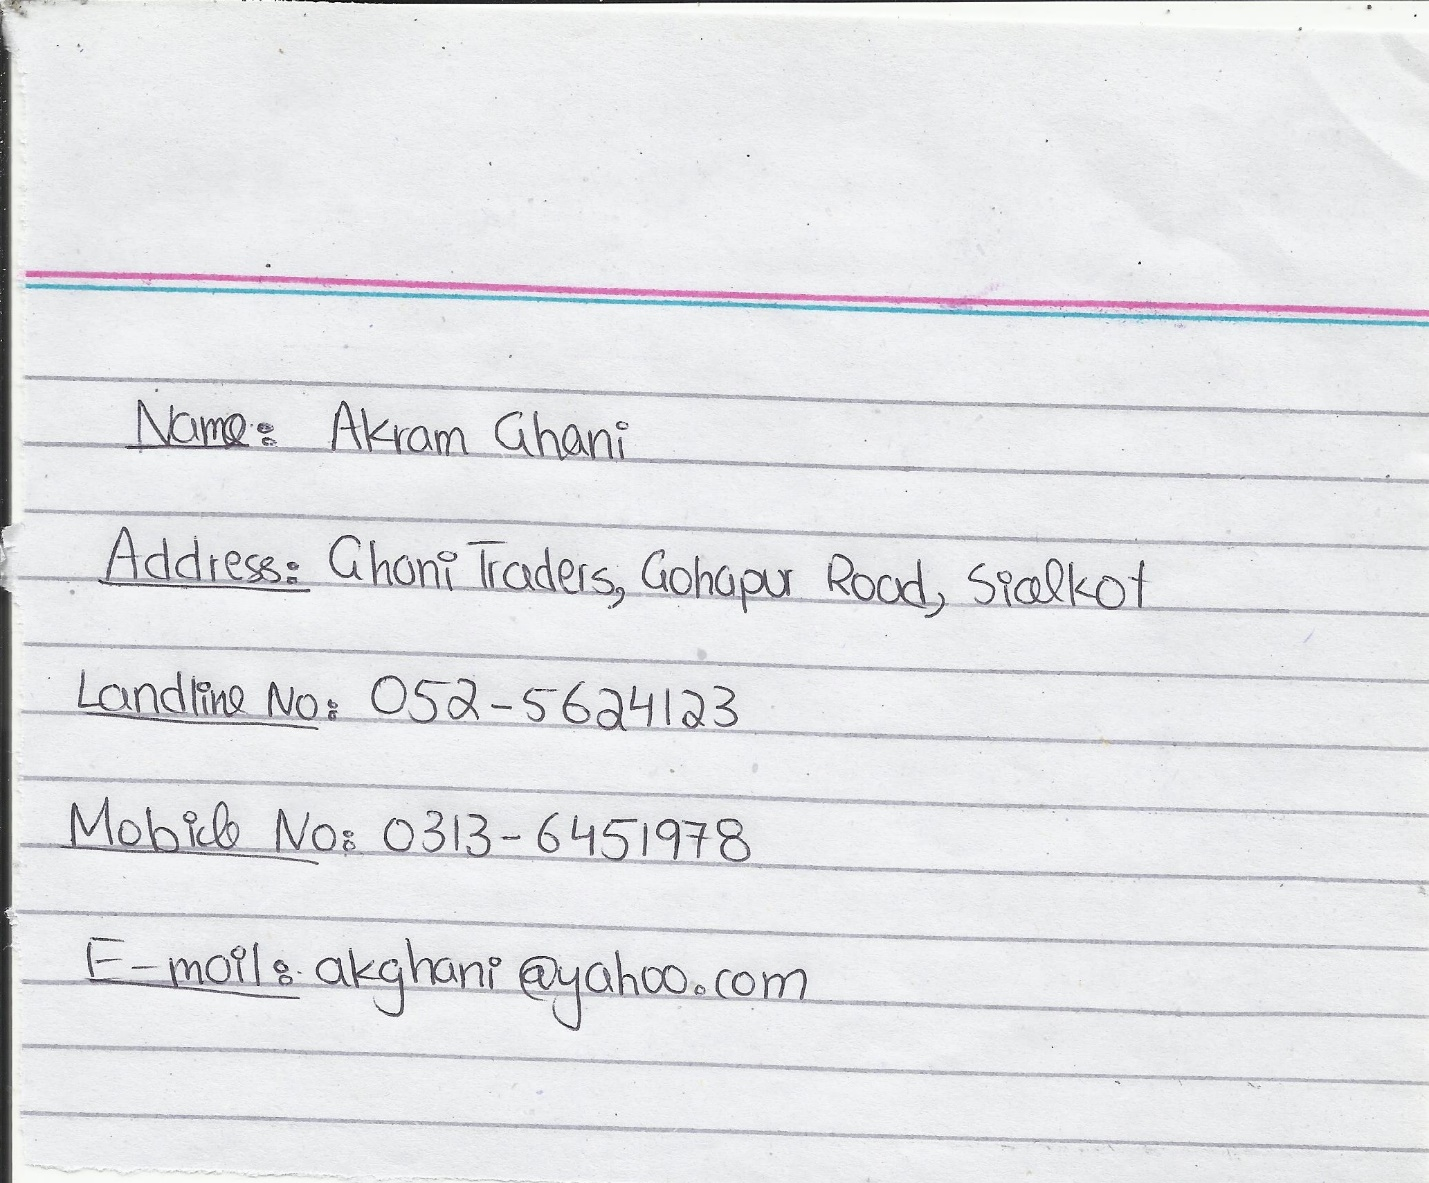 Name: Akram Ghani
Address: Ghani Traders, Gohapur Road, Sialkot
Landline No: 052-5624123
Mobile No: 0313-6451978
E-mail: akghani@yahoo.com